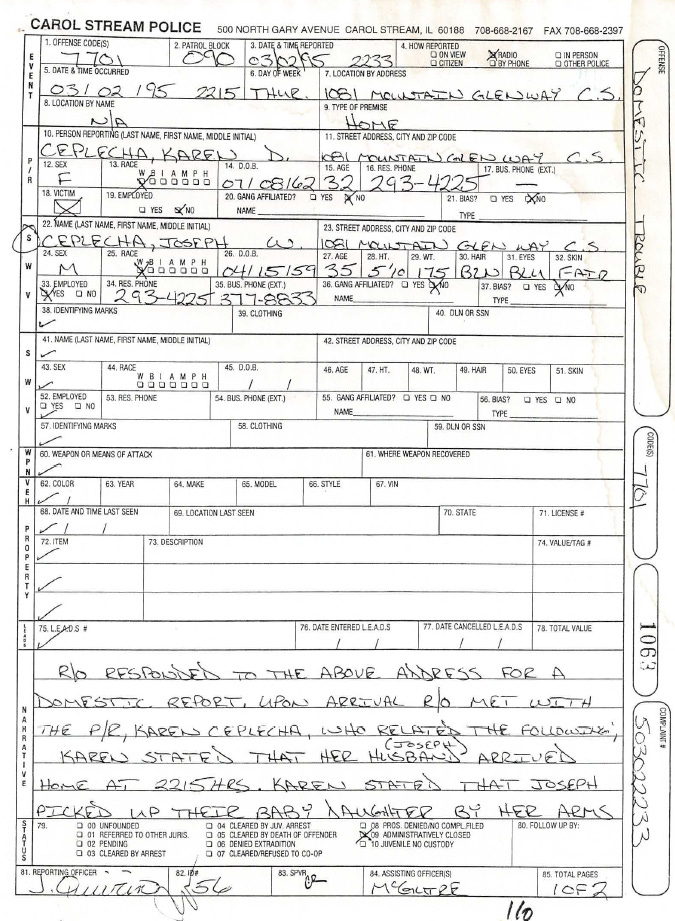 CAROL STREAM POLICE 500 NORTH GARY AVENUE CAROL STREAM, IL 60188 708-668-2167 FAX 708-668-2397
EVENT
1. OFFENSE CODE(S) 2. PATROL BLOCK 3. DATE & TIME REPORTED 4. HOW REPORTED
7701 090 03/02/95 2233 ☐ ON VIEW ☒ RADIO ☐ IN PERSON
☐ CITIZEN ☐ BY PHONE ☐ OTHER POLICE
5. DATE & TIME OCCURRED 6. DAY OF WEEK 7. LOCATION BY ADDRESS
03/02/95 2215 THUR. 1081 MOUNTAIN GLENWAY C.S.
8. LOCATION BY NAME 9. TYPE OF PREMISE
N/A HOME
P/R
10. PERSON REPORTING (LAST NAME, FIRST NAME, MIDDLE INITIAL) 11. STREET ADDRESS, CITY AND ZIP CODE
CEPLECHA, KAREN D. 1081 MOUNTAIN GLEN WAY C.S.
12. SEX 13. RACE 14. D.O.B. 15. AGE 16. RES. PHONE 17. BUS. PHONE (EXT.)
W B I A M P H
F ☒ ☐ ☐ ☐ ☐ ☐ ☐ 07/08/62 32 293-4225 —
18. VICTIM 19. EMPLOYED 20. GANG AFFILIATED? ☐ YES ☒ NO 21. BIAS? ☐ YES ☒ NO
☒ ☐ YES ☒ NO NAME TYPE
S W V
22. NAME (LAST NAME, FIRST NAME, MIDDLE INITIAL) 23. STREET ADDRESS, CITY AND ZIP CODE
CEPLECHA, JOSEPH W. 1081 MOUNTAIN GLEN WAY C.S
24. SEX 25. RACE 26. D.O.B. 27. AGE 28. HT. 29. WT. 30. HAIR 31. EYES 32. SKIN
W B I A M P H
M ☒ ☐ ☐ ☐ ☐ ☐ ☐ 04/15/59 35 5'10 175 BRN BLU FAIR
33. EMPLOYED 34. RES. PHONE 35. BUS. PHONE (EXT.) 36. GANG AFFILIATED? ☐ YES ☒ NO 37. BIAS? ☐ YES ☒ NO
☒ YES ☐ NO 293-4225 377-8833 NAME TYPE
38. IDENTIFYING MARKS 39. CLOTHING 40. DLN OR SSN
✓
S W V
41. NAME (LAST NAME, FIRST NAME, MIDDLE INITIAL) 42. STREET ADDRESS, CITY AND ZIP CODE
✓
43. SEX 44. RACE 45. D.O.B. 46. AGE 47. HT. 48. WT. 49. HAIR 50. EYES 51. SKIN
W B I A M P H
✓ ☐ ☐ ☐ ☐ ☐ ☐ ☐ / /
52. EMPLOYED 53. RES. PHONE 54. BUS. PHONE (EXT.) 55. GANG AFFILIATED? ☐ YES ☐ NO 56. BIAS? ☐ YES ☐ NO
☐ YES ☐ NO NAME TYPE
57. IDENTIFYING MARKS 58. CLOTHING 59. DLN OR SSN
✓
WPN
60. WEAPON OR MEANS OF ATTACK 61. WHERE WEAPON RECOVERED
✓
VEH
62. COLOR 63. YEAR 64. MAKE 65. MODEL 66. STYLE 67. VIN
✓ /
PROPERTY
68. DATE AND TIME LAST SEEN 69. LOCATION LAST SEEN 70. STATE 71. LICENSE #
✓ / /
72. ITEM 73. DESCRIPTION 74. VALUE/TAG #
✓
✓
✓
LEADS
75. L.E.A.D.S # 76. DATE ENTERED L.E.A.D.S 77. DATE CANCELLED L.E.A.D.S 78. TOTAL VALUE
✓ / / / /
NARRATIVE
R/O RESPONDED TO THE ABOVE ADDRESS FOR A
DOMESTIC REPORT. UPON ARRIVAL R/O MET WITH
THE P/R, KAREN CEPLECHA, WHO RELATED THE FOLLOWING;
KAREN STATED THAT HER HUSBAND (JOSEPH) ARRIVED
HOME AT 2215 HRS. KAREN STATED THAT JOSEPH
PICKED UP THEIR BABY DAUGHTER BY HER ARMS
STATUS
79. ☐ 00 UNFOUNDED ☐ 04 CLEARED BY JUV. ARREST ☐ 08 PROS. DENIED/NO COMPL.FILED 80. FOLLOW UP BY:
☐ 01 REFERRED TO OTHER JURIS. ☐ 05 CLEARED BY DEATH OF OFFENDER ☒ 09 ADMINISTRATIVELY CLOSED
☐ 02 PENDING ☐ 06 DENIED EXTRADITION ☐ 10 JUVENILE NO CUSTODY
☐ 03 CLEARED BY ARREST ☐ 07 CLEARED/REFUSED TO CO-OP
81. REPORTING OFFICER 82. ID# 83. SPVR. 84. ASSISTING OFFICER(S) 85. TOTAL PAGES
J. 56 1 OF 2
110
OFFENSE
DOMESTIC TROUBLE
CODE(S)
7701
1063
COMPLAINT #
503022233